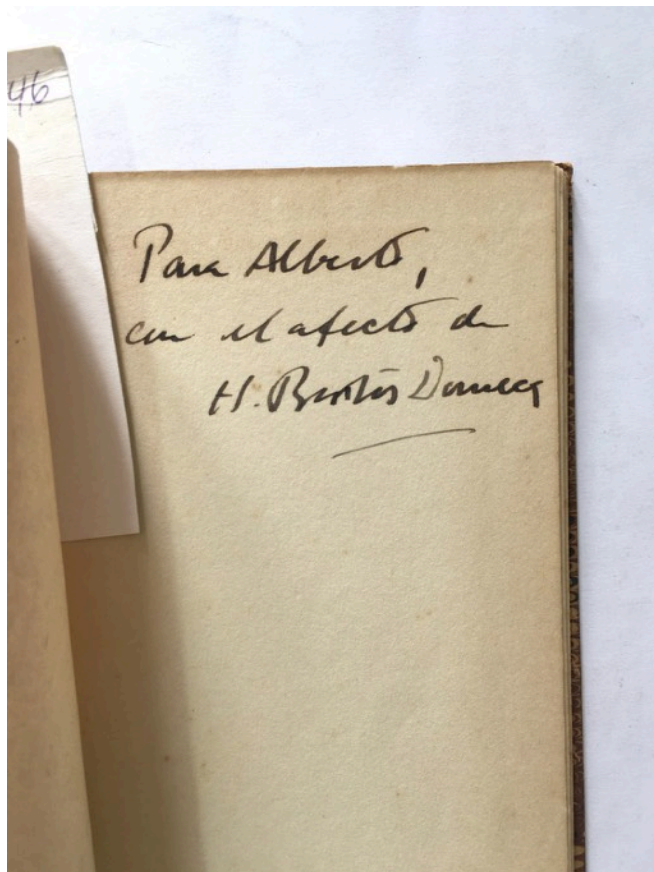 46
Para Alberto,
con el afecto de
H. Bustos Domecq